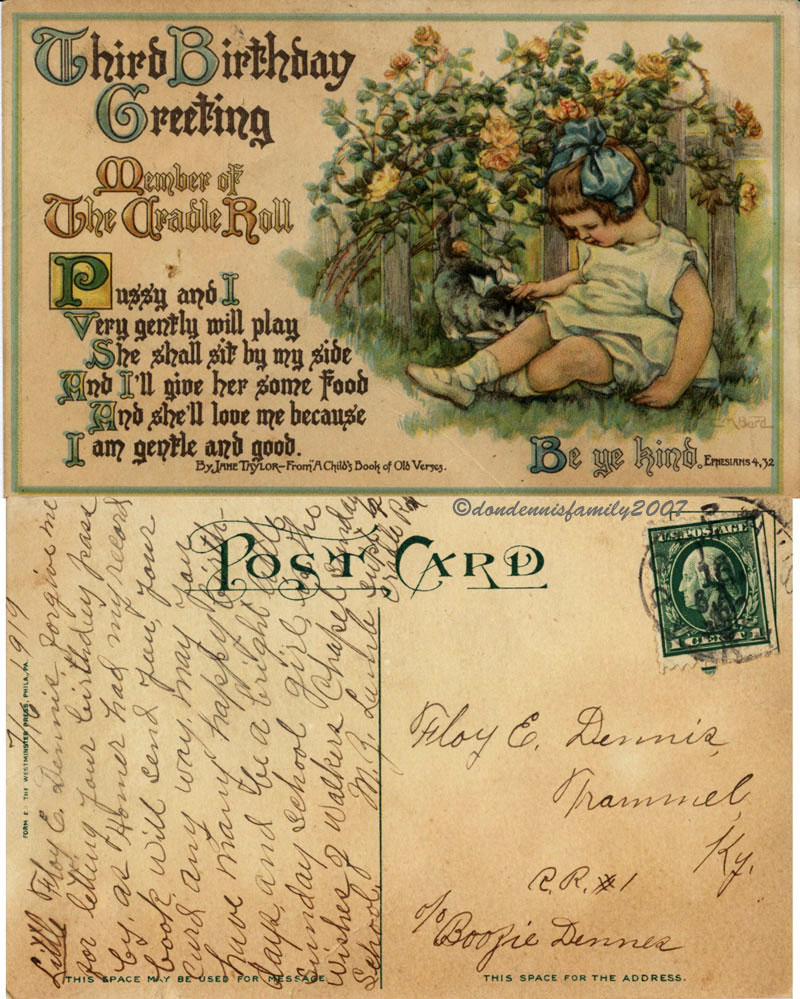 Third Birthday
Greeting
Member of
The Cradle Roll
Pussy and I
Very gently will play
She shall sit by my side
And I'll give her some food
And she'll love me because
I am gently and good.
By Jane Taylor—From "A Child's Book of Old Verses.
Be ye kind. Ephesians 4,32
©dondennisfamily2007
Post Card
U.S. POSTAGE
1 CENT 1
7/16 1919
Little Floy E. Dennis, forgive me
for letting your birthday pass
by, as Homer had my record
book. Will send you your
card any way. may you
have many happy birth-
days, and be a bright little
Sunday School girl, is the
wishes of Walkers Chapel Sunday
School.
Supt. of
Cradle Roll
Floy E. Dennis,
Trammel,
Ky.
R.R. #1
c/o
Boozie Dennes
FORM E THE WESTMINSTER PRESS, PHILA., PA.
THIS SPACE MAY BE USED FOR MESSAGE.
THIS SPACE FOR THE ADDRESS.